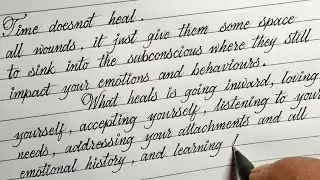 Time doesnot heal.
all wounds, it just give them some space
to sink into the subconscious where they still
impact your emotions and behaviours.
What heals is going inward, loving
yourself, accepting yourself, listening to your
needs, addressing your attachments and all
emotional history, and learning